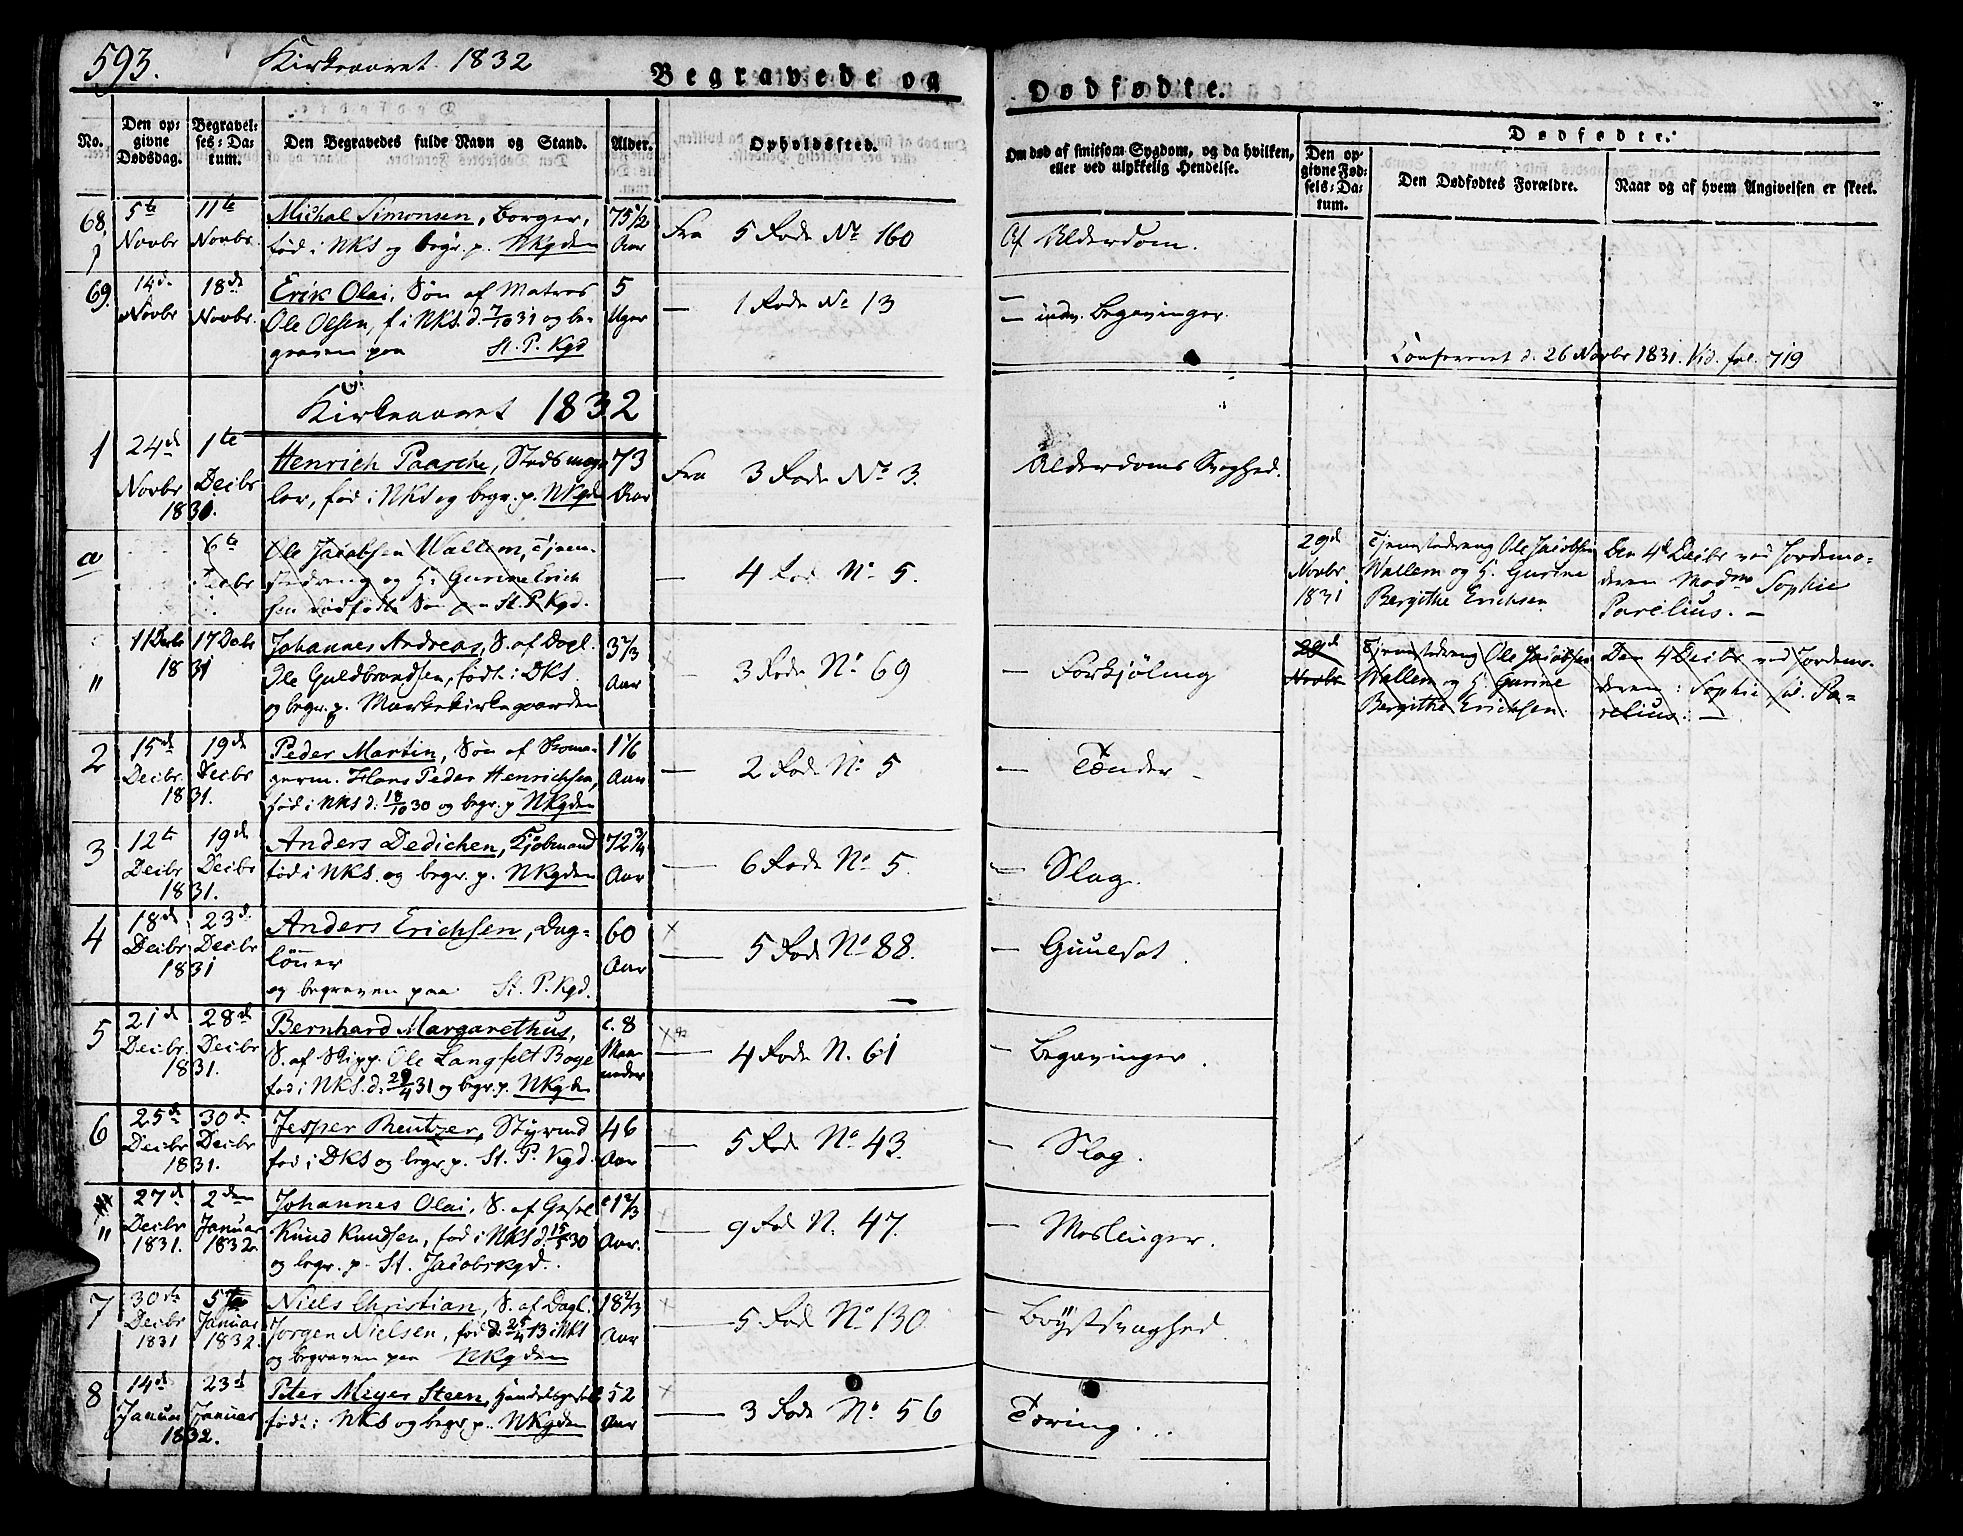 593.
Kirkeaaret 1832
Begravede og Dødfødte.
No.
Den op-
givne
Dødsdag.
Begravel-
ses-Da-
tum.
Den Begravedes fulde Navn og Stand.
Alder.
Opholdssted.
Om død af smitsom Sygdom, og da hvilken,
eller ved ulykkelig Hendelse.
Dødfødte.
Den op-
givne Fød-
sels-Da-
tum.
Den Dødfødtes Forældre.
Naar og af hvem Angivelsen er skeet.
68,
5te
Novbr
11te
Novbr.
Michal Simonsen, Borger,
fød i NKS og begr. p. NKgden
75 1/2
Aar
Fra 5 Rode No 160
Af Alderdom.
69.
14de
Novbr
18de
Novbr.
Erik Olai, Søn af Matros
Ole Olsen, f. i NKS. d. 7/10 31 og be-
graven paa St. P. Kgd
5
Uger
— 1 Rode No 13
— indv. Begavinger.
Confereret d. 26 Novbr 1831. Vid. fol. 719
Kirkeaaret 1832
1
24de
Novbr
1te
Decbr
1831.
Henrich Paasche, Stadsmæg-
ler, fød i NKS og begr. p. NKgd
73
Aar
Fra 3 Rode No 3.
Alderdoms Svaghed.
a
6te
Decbr
Ole Jacobsen Wallem, Tjene-
stedreng og H. Gurine Erich
sen dødfødte Søn paa St. P. Kgd.
— 4 Rod No 5.
29de
Novbr
1831
Tjenestedreng Ole Jacobsen
Wallem og H. Gurine
Bergithe Erichsen
Den 4de Decbr ved Jordemo-
deren Madm Sophie
Parelius. —
"
11 Decbr 17 Decbr
1831
Johannes Andreas, S. af Dagl.
Ole Guldbrandsen, født i DKS.
og begr. p. Mærkekirkegaarden
3 2/3
Aar
— 3 Rode No 69
— Forkjøling
29de
Novbr
Tjenestedreng Ole Jacobsen
Wallem og H. Gurine
Bergithe Erichsen.
Den 4 Decbr ved Jordemo-
deren: Sophie Pa-
relius. —
2
15de
Decbr
19de
Decbr
1831.
Peder Martin, Søn af Skoma-
germ. Hans Peder Henrichsen,
fød i NKS d: 18/10 30 og begr. p NKgden
1 1/6
Aar
— 2 Rode No 5
— Tænder —
3
12te
Decbr
19de
Decbr
1831.
Anders Dedichen, Kjøbmand
fød i NKS. og begr. p. NKgden
72 3/4
Aar
— 6 Rode No 5.
— Slag.
4
18de
Decbr
23de
Decbr
1831
Anders Erichsen, Dag-
lønner
og begraven paa St. P. Kgd.
60
Aar
— 5 Rode No 88.
— Guulsot.
5
21de
Decbr
28de
Decbr
1831.
Bernhard Margarethus,
S. af Skipp. Ole Langfelt Boge
fød i NKS. d. 29/4 31 og begr. p. NKgden
c. 8
Maa-
neder
— 4 Rode N. 61
— Begavinger.
6
25de
Decbr
30de
Decbr
1831.
Jesper Reutzer, Styrmd
fød i DKS og begr. p. St. P. Kgd.
46
Aar
— 5 Rode No 43.
— Slag.
"
27de
Decbr
1831.
2den
Januar
1832.
Johannes Olai, S. af Gasel
Knud Knudsen, fød i NKS d. 15/5 30
og begr. p. St. Jacobskgd.
c 1 2/3
Aar.
— 9 Rode N. 47.
— Meslinger.
7
30de
Decbr
1831
5te
Januar
1832.
Niels Christian, S. af Dagl.
Jørgen Nielsen, fød d. 25/4 13 i NKS
og begraven paa NKgden
18 2/3
Aar
— 5 Rode No 130.
— Brystsvaghed.
8
14de
Januar
23de
Januar
1832.
Peter Meyer Steen, Handelsgesel
født i NKS og begr. p. NKgden
52
Aar
— 3 Rode No 56
Tæring...